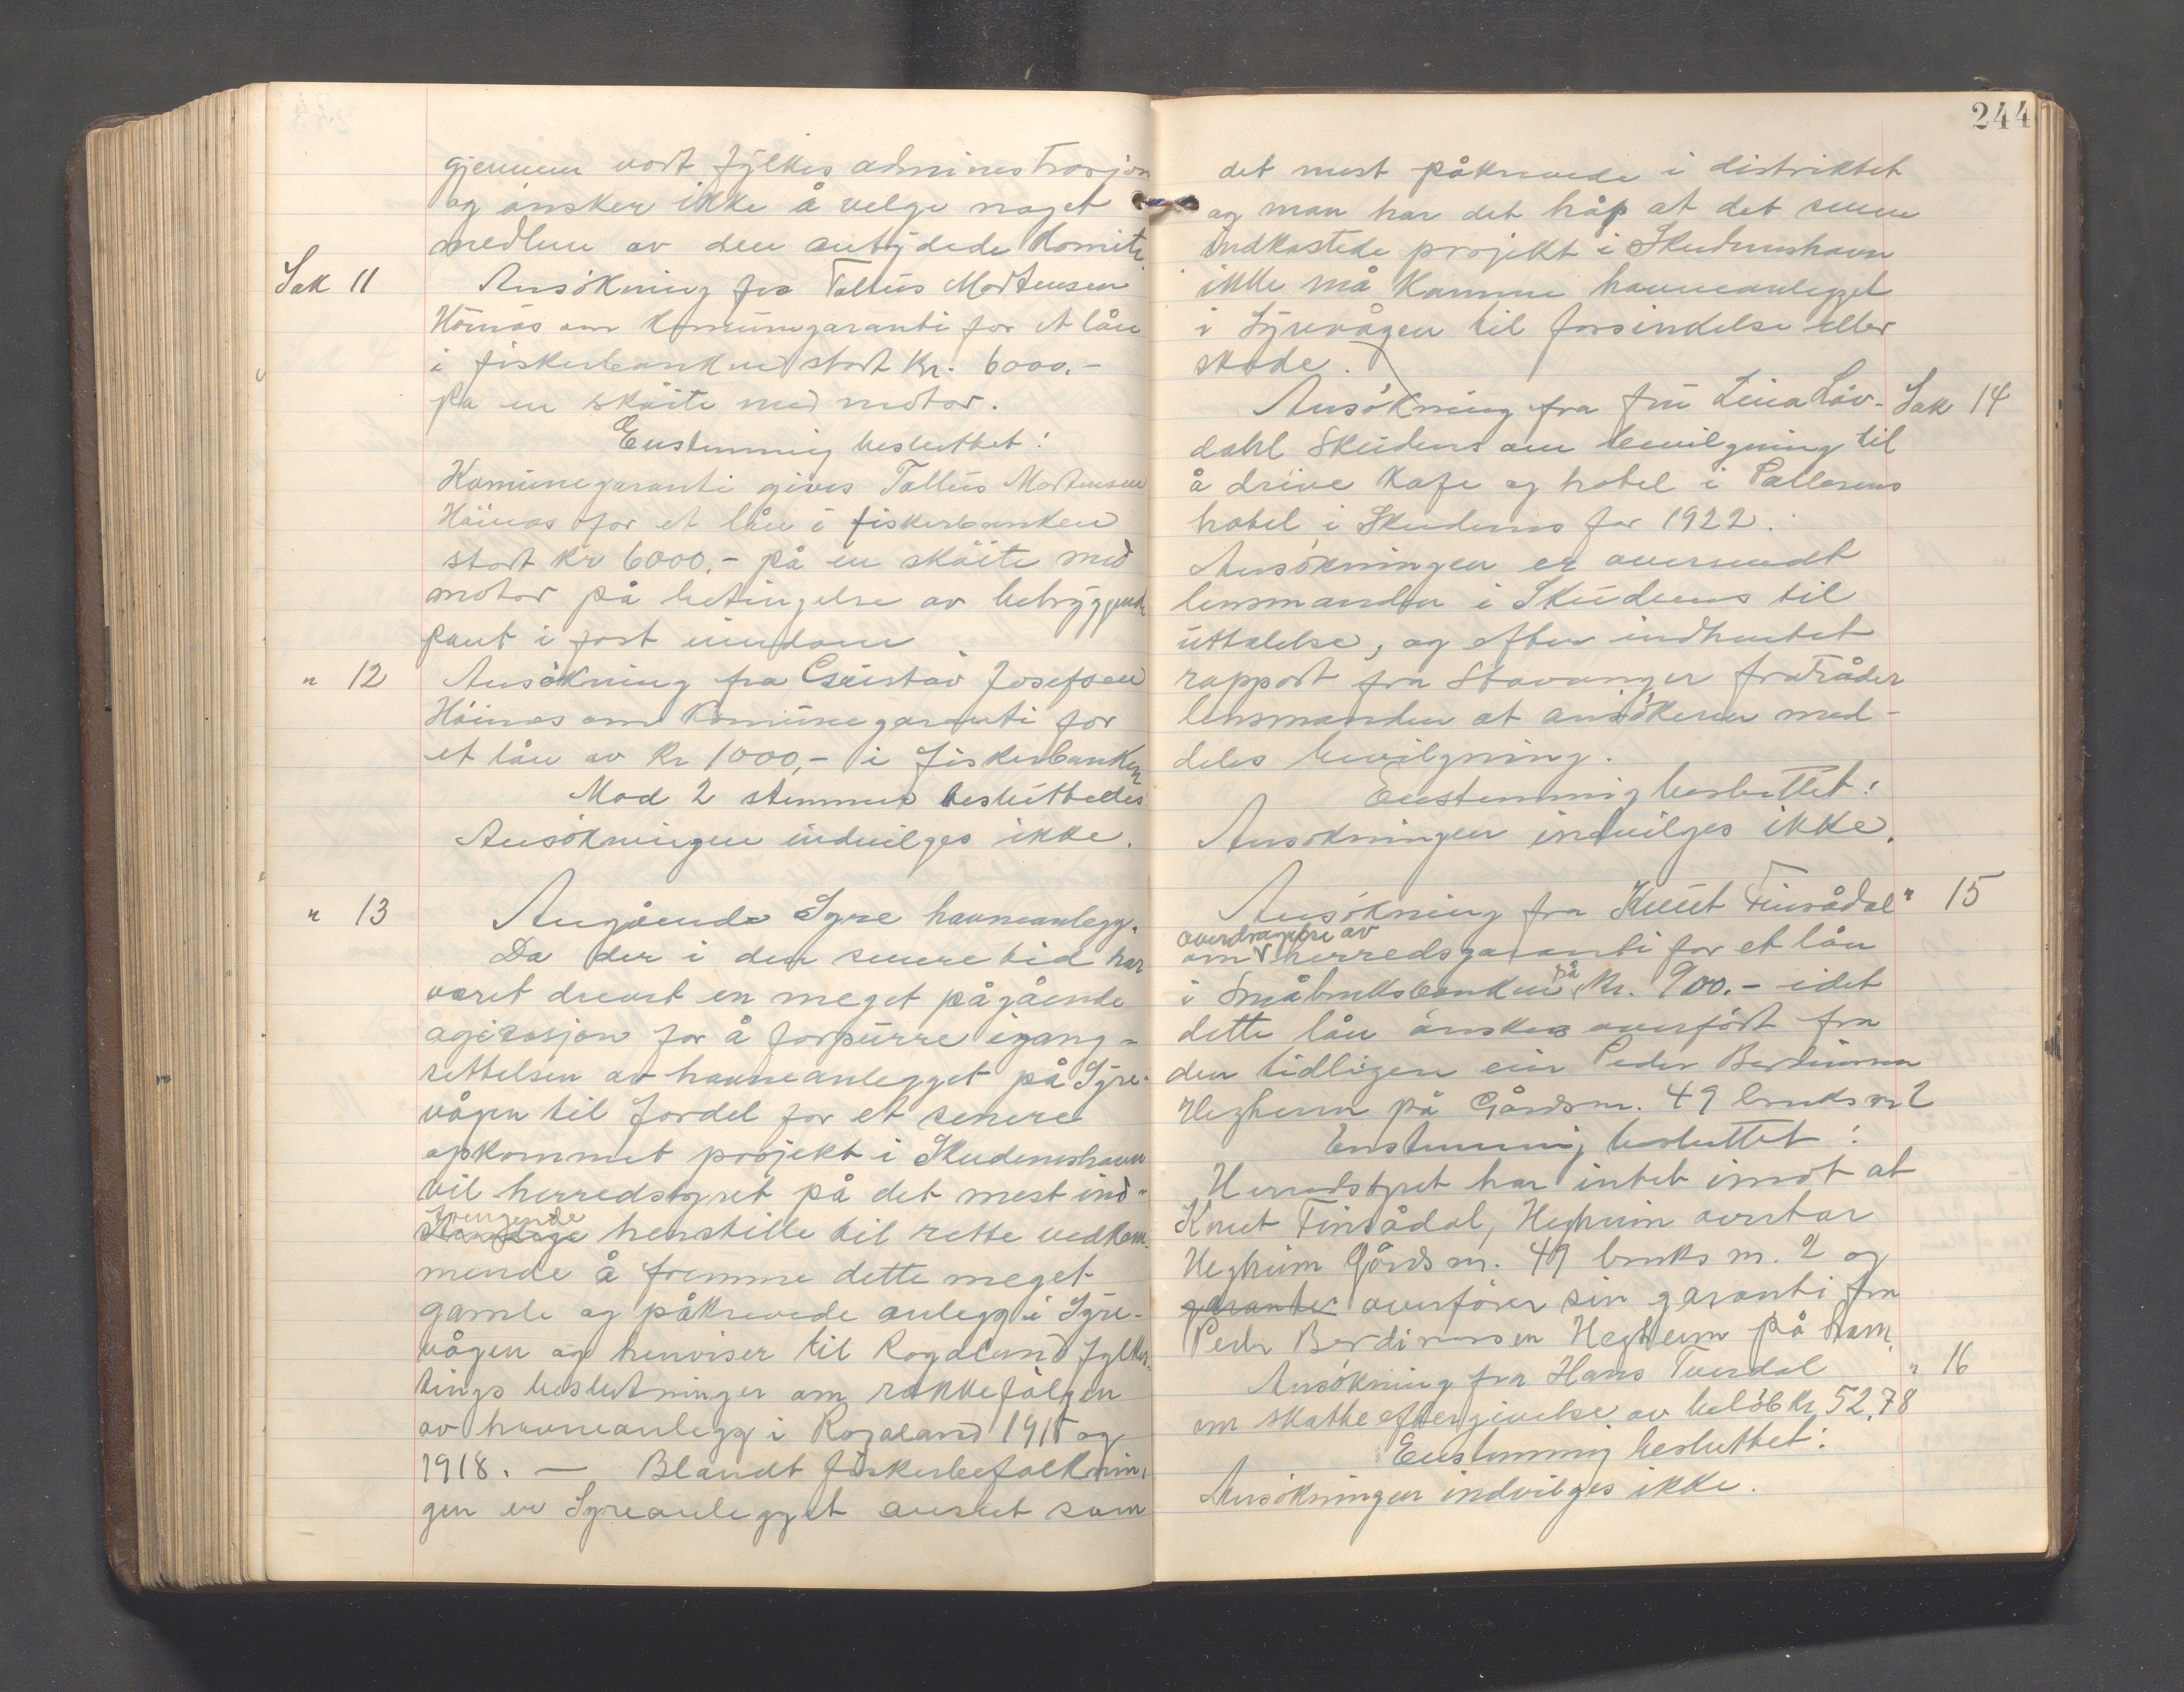 gjennem vort fylkes administrasjon
og ønsker ikke å velge noget
medlem av den antydede komite.
Sak 11 Ansökning fra Tallüs Mortensen
Höinös om Komünegaranti for et lån
i fiskerbanken stort kr. 6000.-
på en sköite med motor.
Enstemmig besluttet:
Komünegaranti gives Tallüs Mortensen
Höinös for et lån i fiskerbanken
stort kr 6000.- på en sköite med
motor på betingelse av betryggende
pant i fast eiendom
" 12 Ansökning fra Güstav Josefsen
Höines om Komünegaranti for
et lån av kr 1000,- i fiskerbanken
Mod 2 stemmer beslüttedes:
Ansökningen indvilges ikke.
" 13 Angående Syre havneanlegg.
Da der i den senere tid har
været drevet en meget pågående
agitasjon for å forpürre igang-
settelsen av havneanlegget på Syre-
vågen til fordel for et senere
opkommet projekt i Skudeneshavn
vil herredstyret på det mest ind-
trengende henstille til rette vedkom-
mende å fremme dette meget
gamle og påkrevede anlegg i Syre-
vågen og henviser til Rogaland fylkes-
tings beslutninger om rekkefölgen
av havneanlegg i Rogaland 1915 og
1918. — Blandt fiskerbefolknin-
gen er Syreanlegget ansett som
244
det mest påkrevede i distriktet
og man har det håp at det senere
indkastede projekt i Skudeneshavn
ikke må komme havneanlegget
i Syrevågen til forsinkelse eller
skade.
Ansökning fra frü Lina Löv- Sak 14
dahl Skudenes om bevilgning til
å drive kafe og hotel i Pallesens
hotel i Skudenes for 1922.
Ansökningen er oversendt
lensmanden i Skudenes til
üttalelse, og efter indhentet
rapport fra Stavanger fraråder
lensmanden at ansökeren med-
deles bevilgning.
Enstemmig besluttet:
Ansökningen indvilges ikke.
Ansökning fra Knüt Finsådal " 15
overdragelse av
om herredsgaranti for et lån
i Småbruksbanken på kr. 900.- idet
dette lån önskes overfört fra
den tidligere eier Peder Berdinesen
Hegheim på Gårdsnr. 49 bruksnr 2
Enstemmig besluttet:
Herredstyret har intet imot at
Knut Finsådal, Hegheim overtar
Hegheim Gårdsnr. 49 bruks nr. 2 og
garanti overförer sin garanti fra
Peder Berdinesen Hegheim på ham.
Ansökning fra Hans Tverdal " 16
om skatteeftergivelse av belöb kr. 52,78
Enstemmig besluttet:
Ansökningen indvilges ikke.